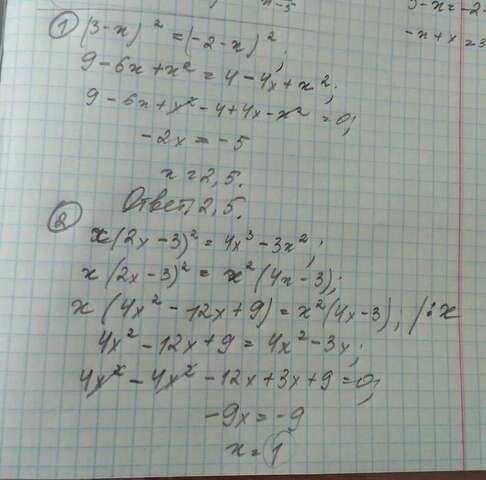 3-x=-2-
-x+x=3
① (3-x)² = (-2-x)²;
9-6x+x² = 4-4x+x²;
9-6x+x²-4+4x-x²=0;
-2x=-5
x=2,5.
Ответ: 2,5.
② x(2x-3)² = 4x³-3x²;
x(2x-3)² = x²(4x-3);
x(4x²-12x+9) = x²(4x-3), /:x
4x²-12x+9=4x²-3x;
4x²-4x²-12x+3x+9=0;
-9x=-9
x=1